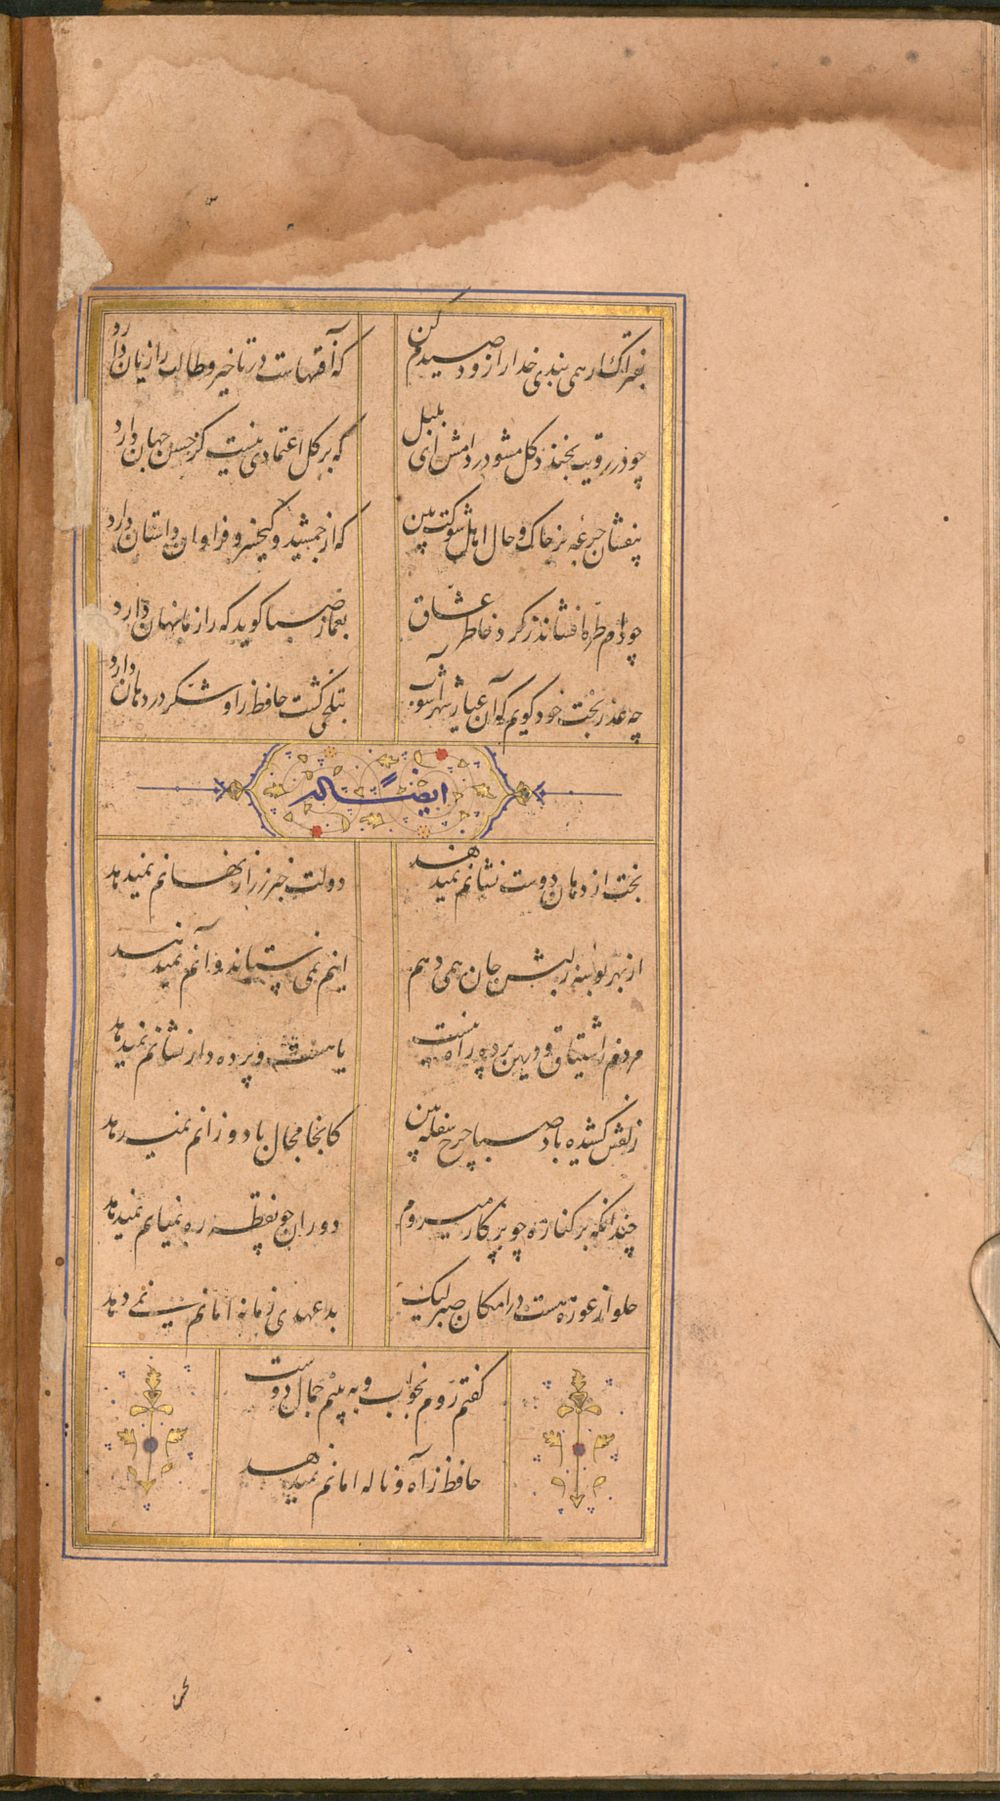 بفتراک ار همی بندی خدا را زود صیدم کن
که آفتهاست در تاخیر و طالب را زیان دارد
چو در رویت بخندد گل مشو در دامش ای بلبل
که بر گل اعتمادی نیست گر حسن جهان دارد
بیفشان جرعه بر خاک و حال اهل شوکت بین
که از جمشید و کیخسرو فراوان داستان دارد
چو دام طره افشاند ز گرد خاطر عشاق
بغماز صبا گوید که راز ما نهان دارد
چه عذر بخت خود گویم که آن عیار شهرآشوب
بتلخی کشت حافظ را و شکر در دهان دارد
ایضاً له
بخت از دهان دوست نشانم نمیدهد
دولت خبر ز راز نهانم نمیدهد
از بهر بوسهٔ ز لبش جان همی دهم
اینم نمی ستاند و آنم نمیدهد
مردم ز اشتیاق و درین پرده راه نیست
یا هست و پرده دار نشانم نمیدهد
زلفش کشیده باد صبا چرخ سفله بین
کانجا مجال باد وزانم نمیدهد
چندانکه بر کناره چو پرکار میروم
دوران چو نقطه ره بمیانم نمیدهد
حلوا ز غوره هست در امکان صبر لیک
بدعهدی زمانه امانم نمی دهد
گفتم روم بخواب و به بینم جمال دوست
حافظ ز آه و ناله امانم نمیدهد